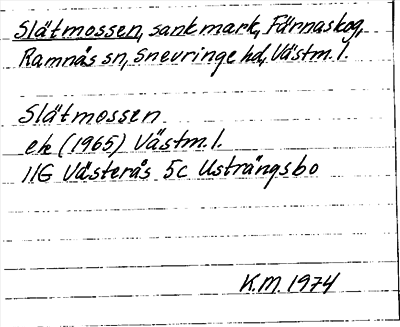 Slätmossen, sankmark, Färnaskog,
Ramnäs sn, Snevringe hd, Västm. l.
Slätmossen
ek (1965) Västm. l.
11G Västerås 5c Usträngsbo
K.M. 1974